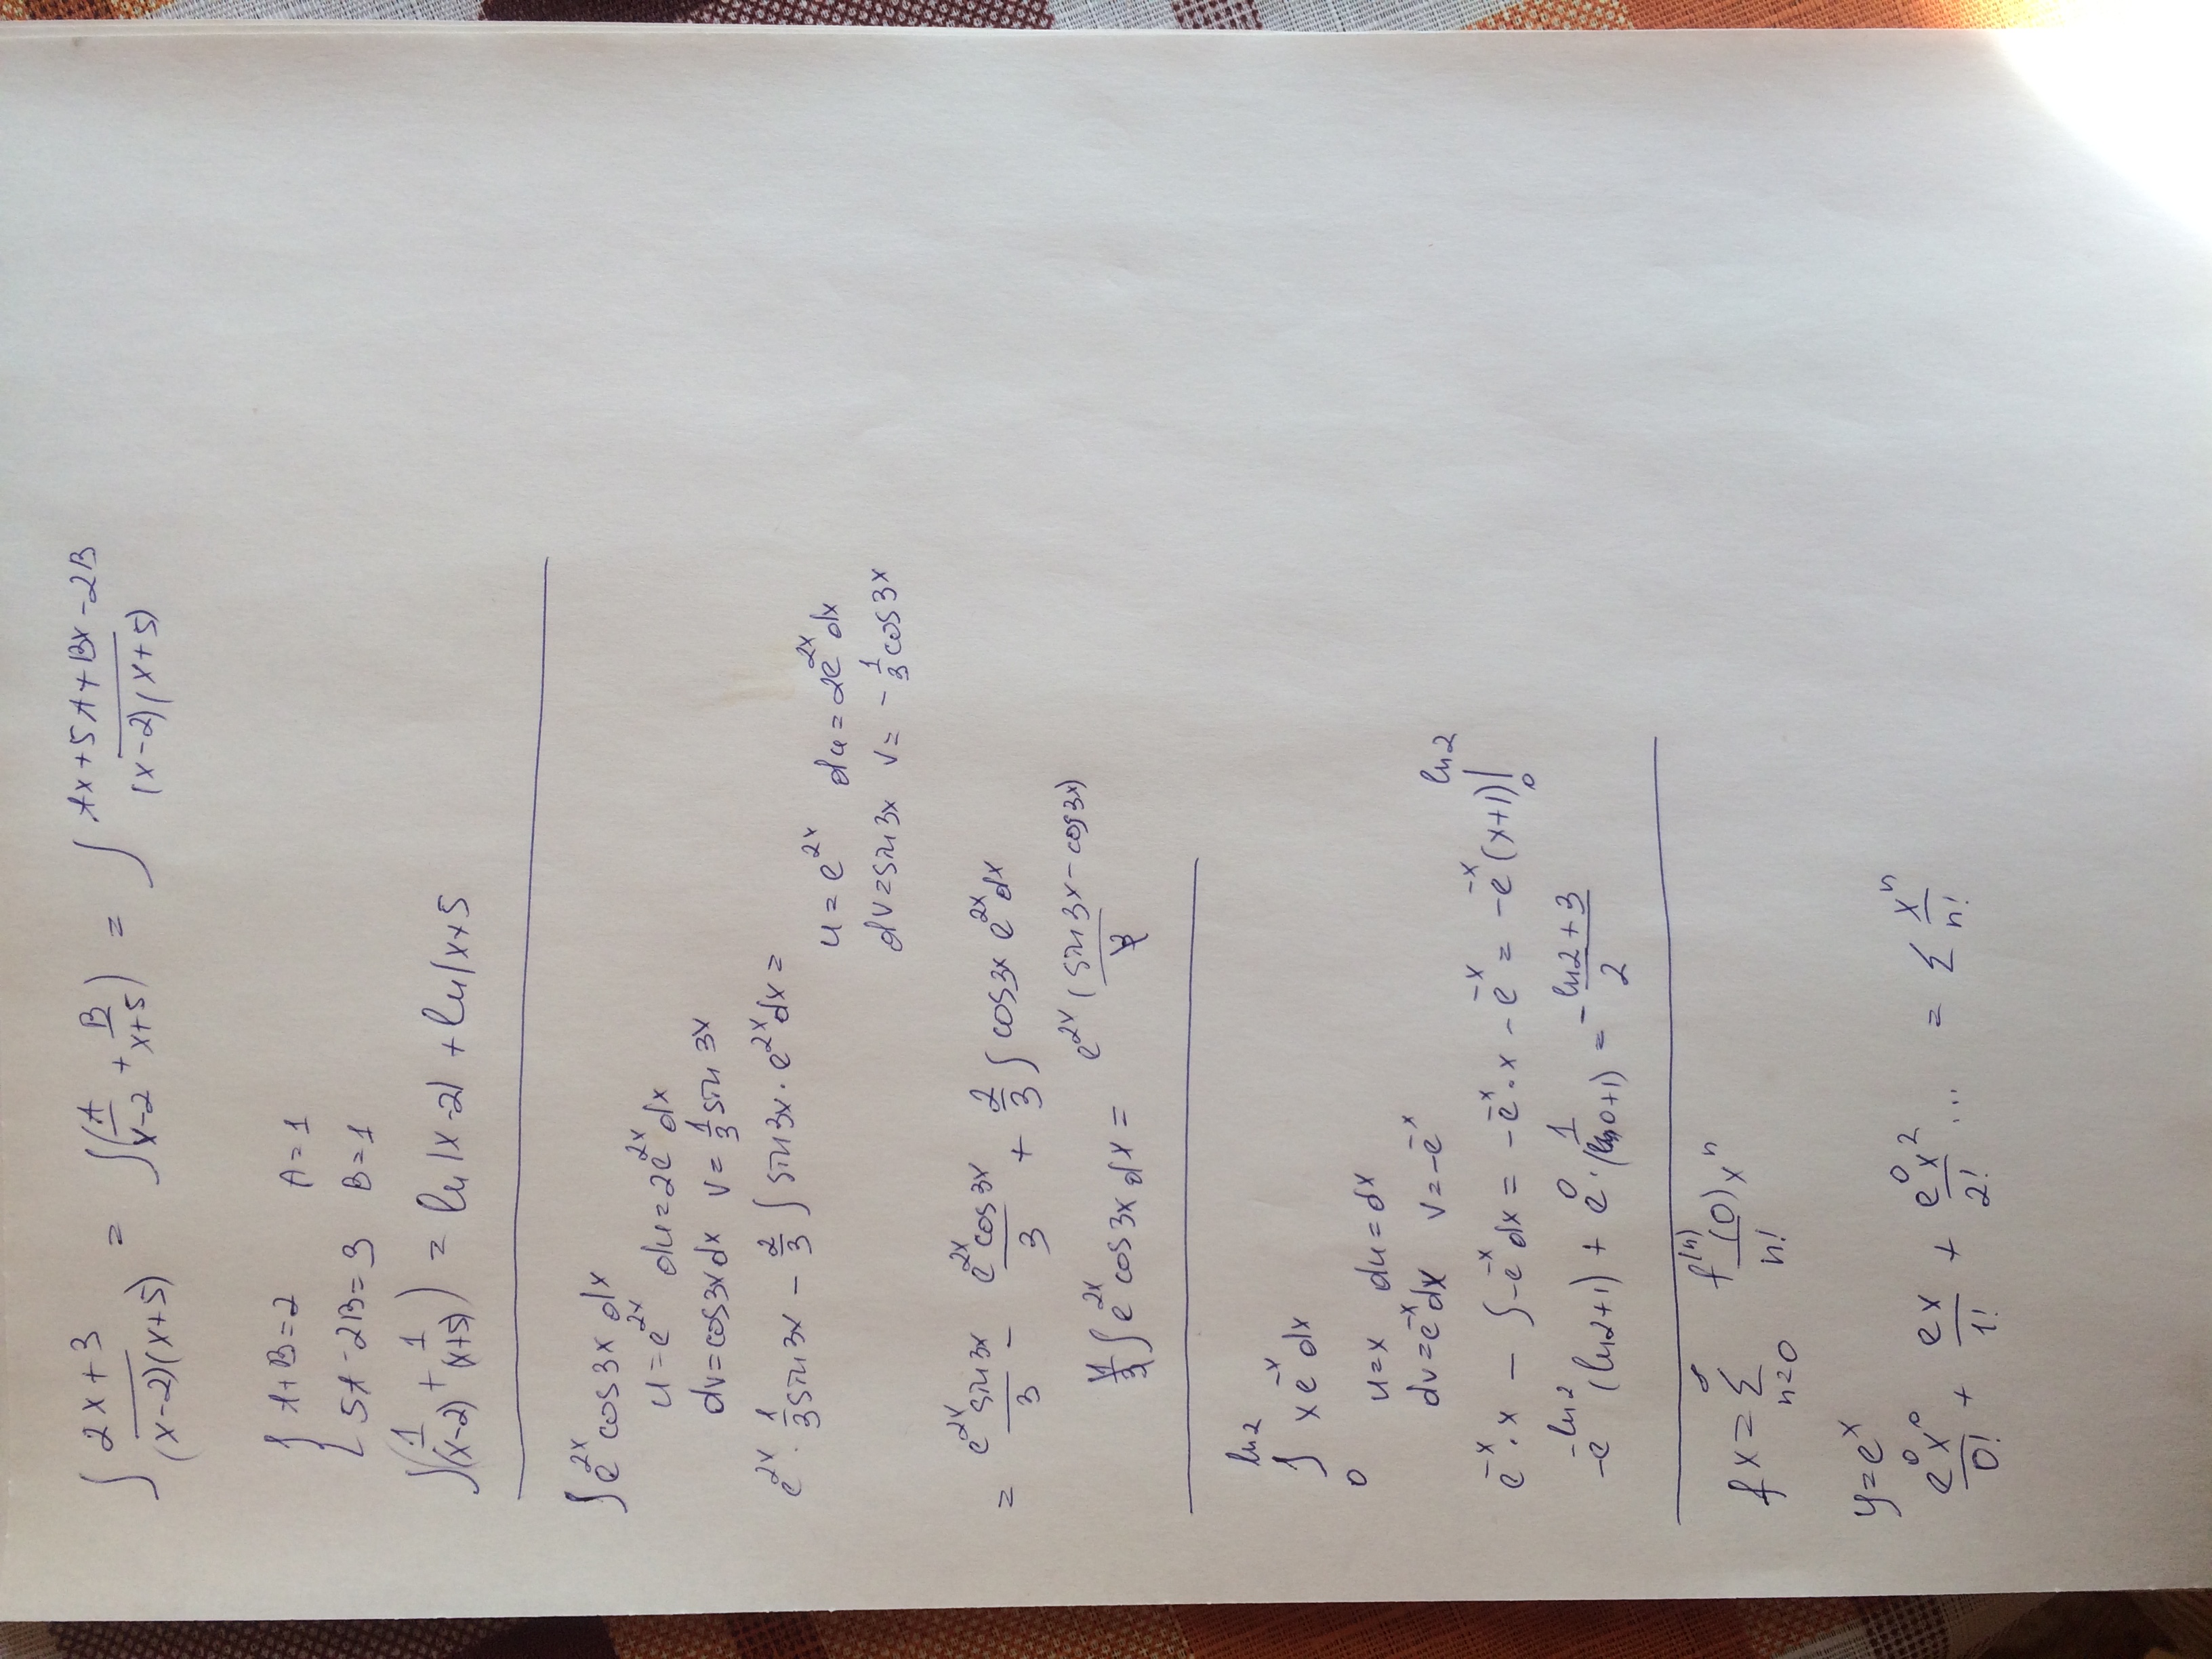 ∫ (2x+3)/((x-2)(x+5)) = ∫(A/(x-2) + B/(x+5)) = ∫ (Ax+5A+Bx-2B)/((x-2)(x+5))
{ A+B=2 A=1
5A-2B=3 B=1
∫(1/(x-2) + 1/(x+5)) = ln|x-2| + ln|x+5
∫e^2x cos3x dx
u=e^2x du=2e^2x dx
dv=cos3x dx v=1/3 sin3x
e^2x · 1/3 sin3x - 2/3 ∫ sin3x · e^2x dx =
u=e^2x du=2e^2x dx
dv=sin3x v= -1/3 cos3x
= e^2x sin3x/3 - e^2x cos3x/3 + 2/3 ∫ cos3x e^2x dx
∫ e^2x cos3x dx = e^2x (sin3x - cos3x)
ln2
∫ x e^-x dx
0
u=x du=dx
dv=e^-x dx v=-e^-x
e^-x · x - ∫-e^-x dx = -e^-x · x - e^-x = -e^-x (x+1)|_0^ln2
-e^-ln2 (ln2+1) + e^0 · (0+1) = -(ln2+3)/2
fx = ∑_{n=0}^∞ f^(n)(0)x^n/n!
y=e^x
e^0 x^0/0! + ex/1! + e^0 x^2/2! ... = ∑ x^n/n!